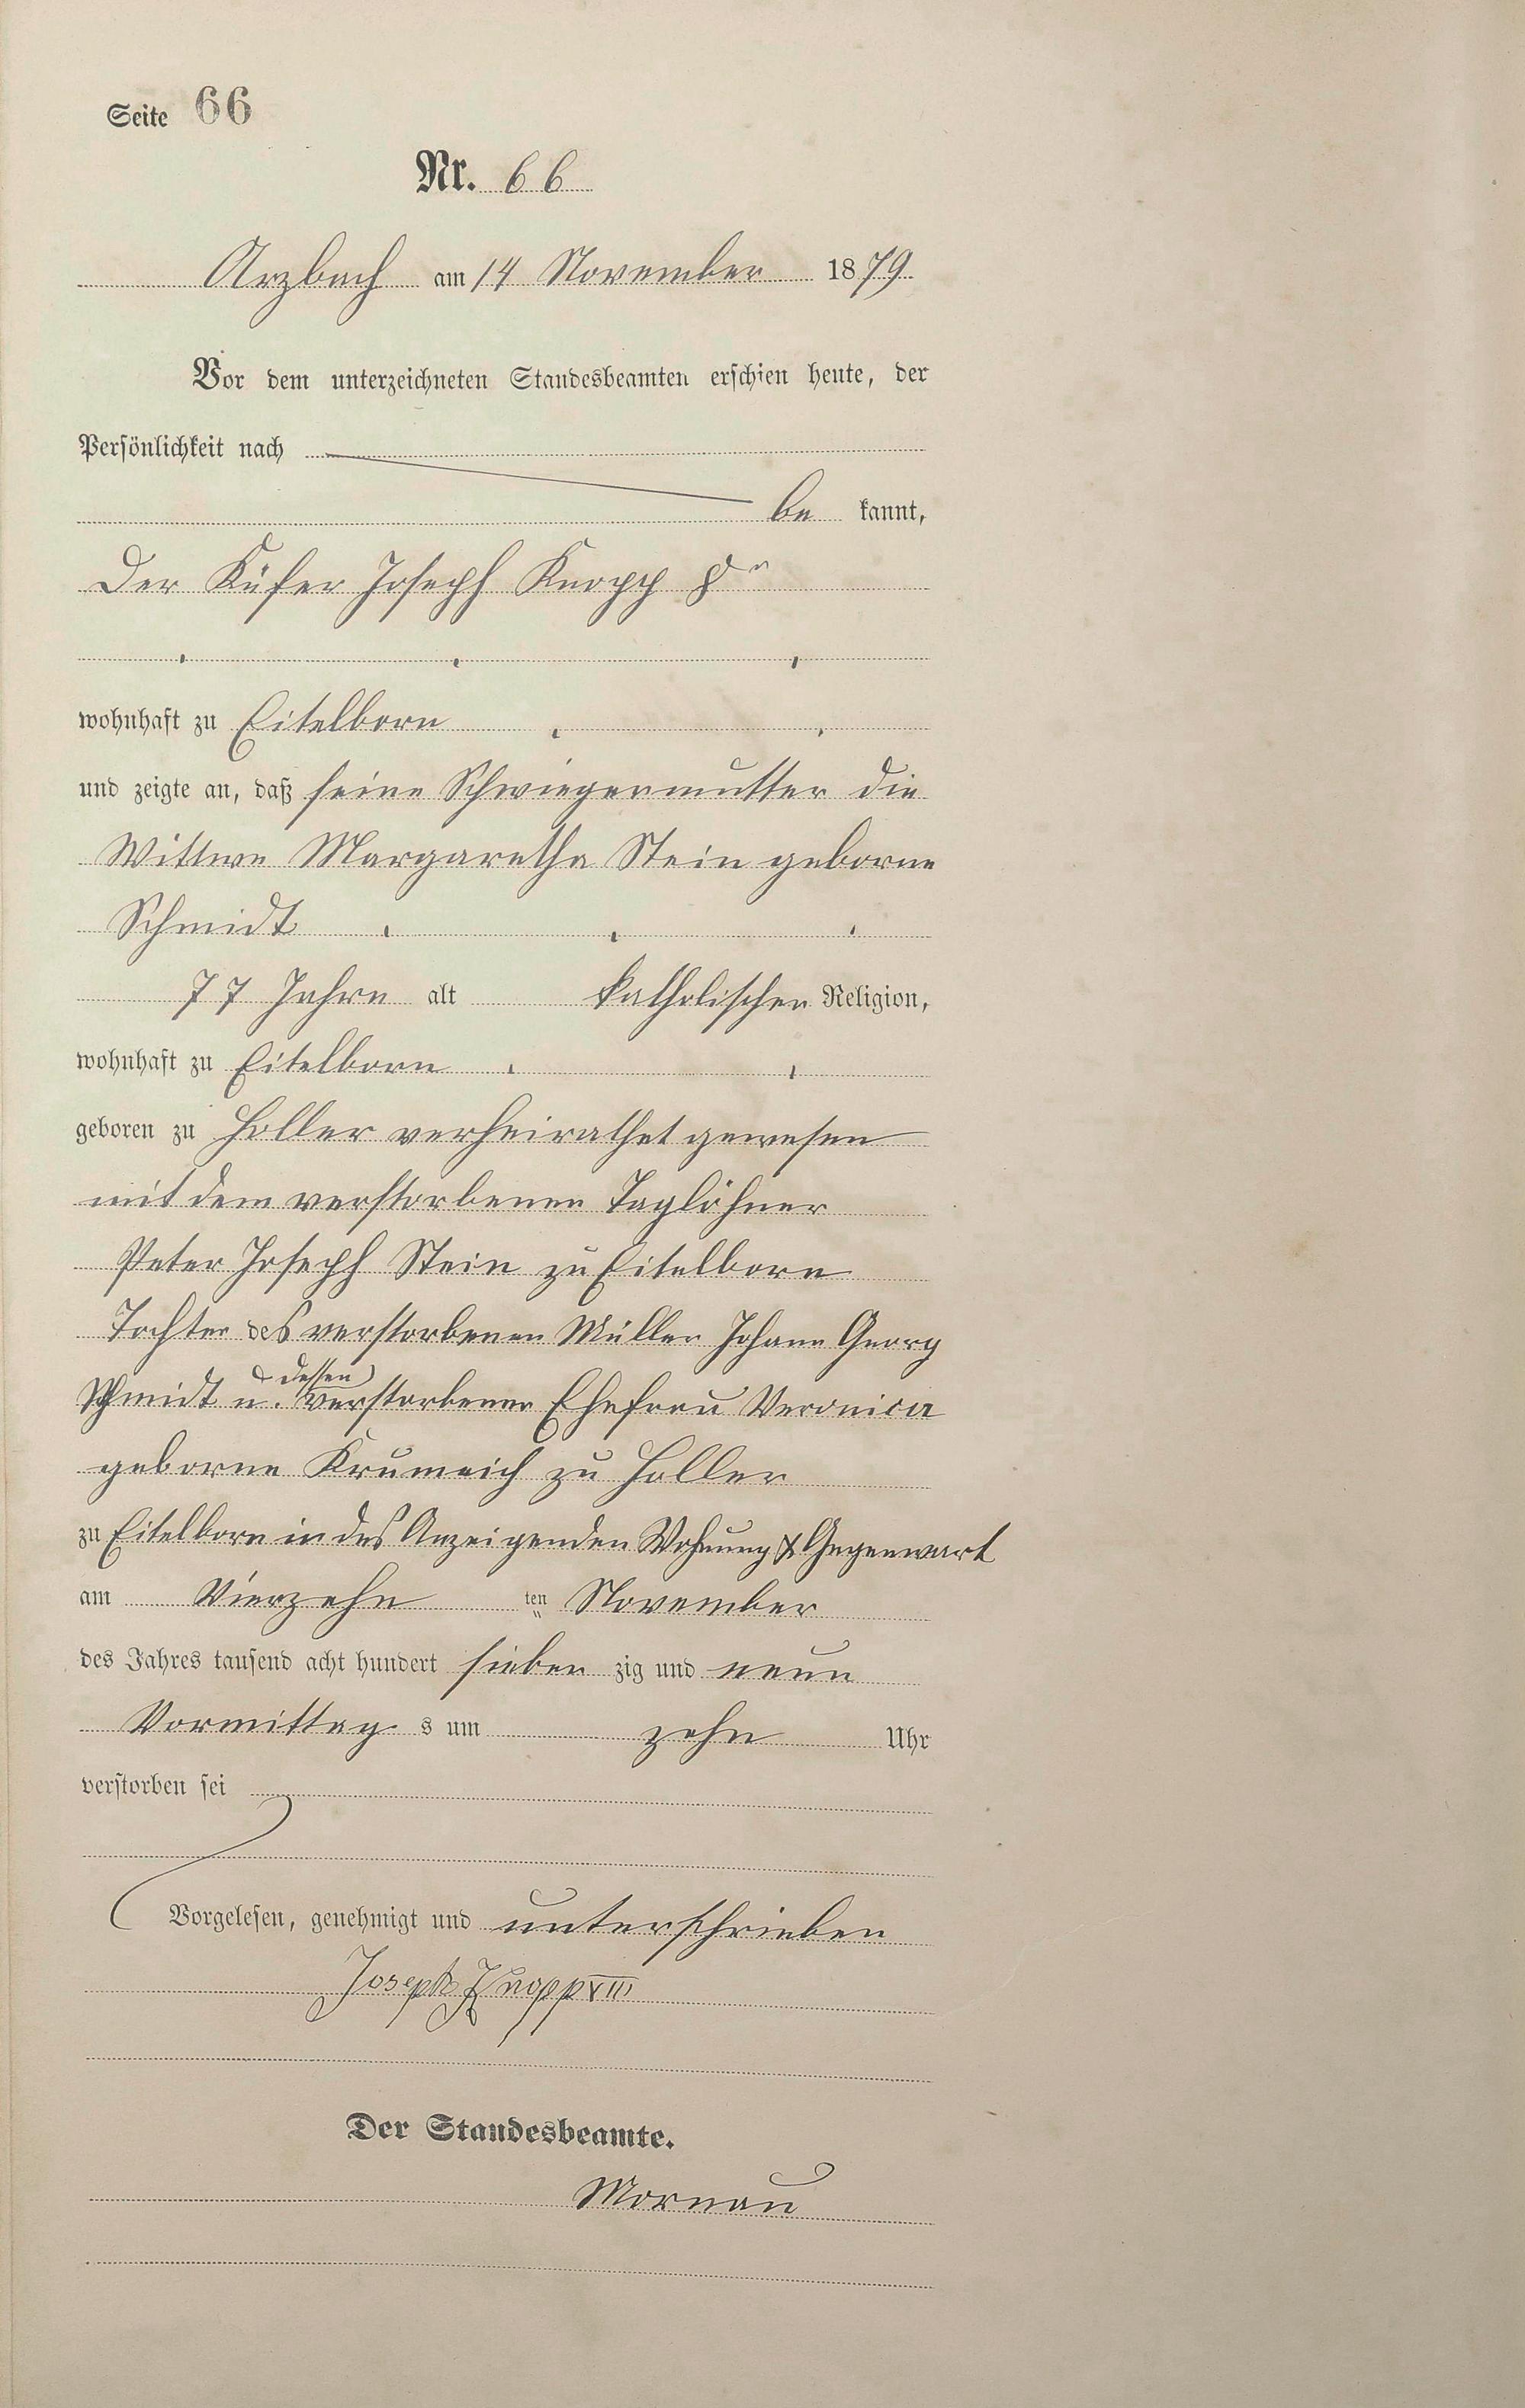 Seite 66
Nr. 66
Arzbach am 14 November 1879.
Vor dem unterzeichneten Standesbeamten erschien heute, der
Persönlichkeit nach
be kannt,
Der Küfer Joseph Knopp
wohnhaft zu Eitelborn
und zeigte an, daß seine Schwiegermutter die
Wittwe Margaretha Stein geborne
Schmidt
77 Jahre alt katholischer Religion,
wohnhaft zu Eitelborn
geboren zu Holler verheirathet gewesen
mit dem verstorbenen Taglöhner
Peter Joseph Stein zu Eitelborn
Tochter des verstorbenen Müller Johann Georg
& dessen
Schmidt u. verstorbener Ehefrau Veronica
geborne Krumeich zu Holler
zu Eitelborn in des Anzeigenden Wohnung & Gegenwart
am Vierzehn ten November
des Jahres tausend acht hundert sieben zig und neun
Vormittag s um zehn Uhr
verstorben sei
Vorgelesen, genehmigt und unterschrieben
Joseph Knopp XIII
Der Standesbeamte.
Mornau